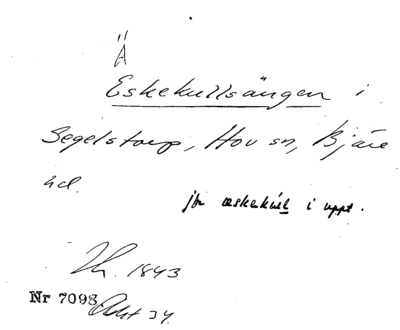 Ä
Eskekullsängen i
Segelstorp, Hov sn, Bjäre
hd.
jfr æskekúl i uppt.
Th. 1843
Nr 7098
Akt 34.